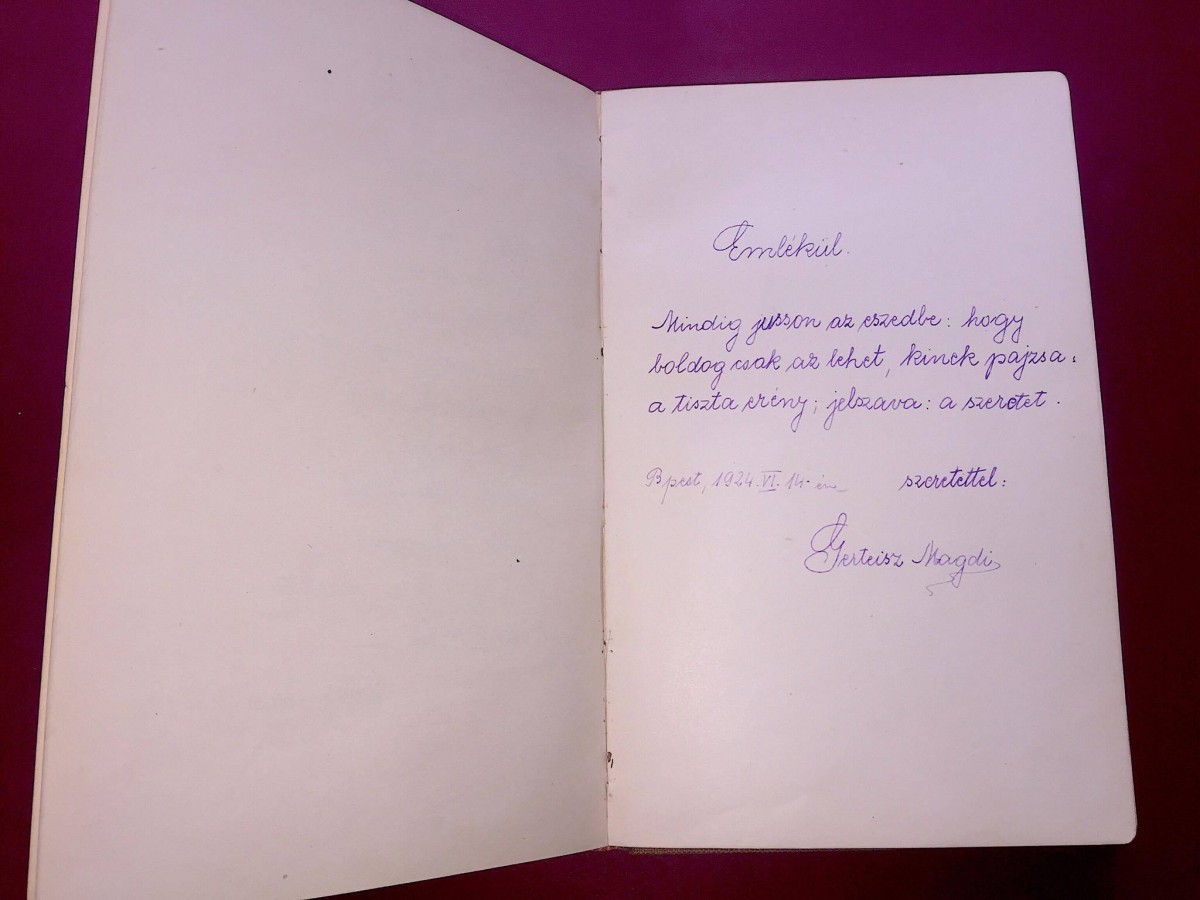 Emlékül.
Mindig jusson az eszedbe: hogy
boldog csak az lehet, kinek pajzsa:
a tiszta erény; jelszava: a szeretet.
Bpest, 1924. VI. 14-én szeretettel:
Gerteisz Magdi